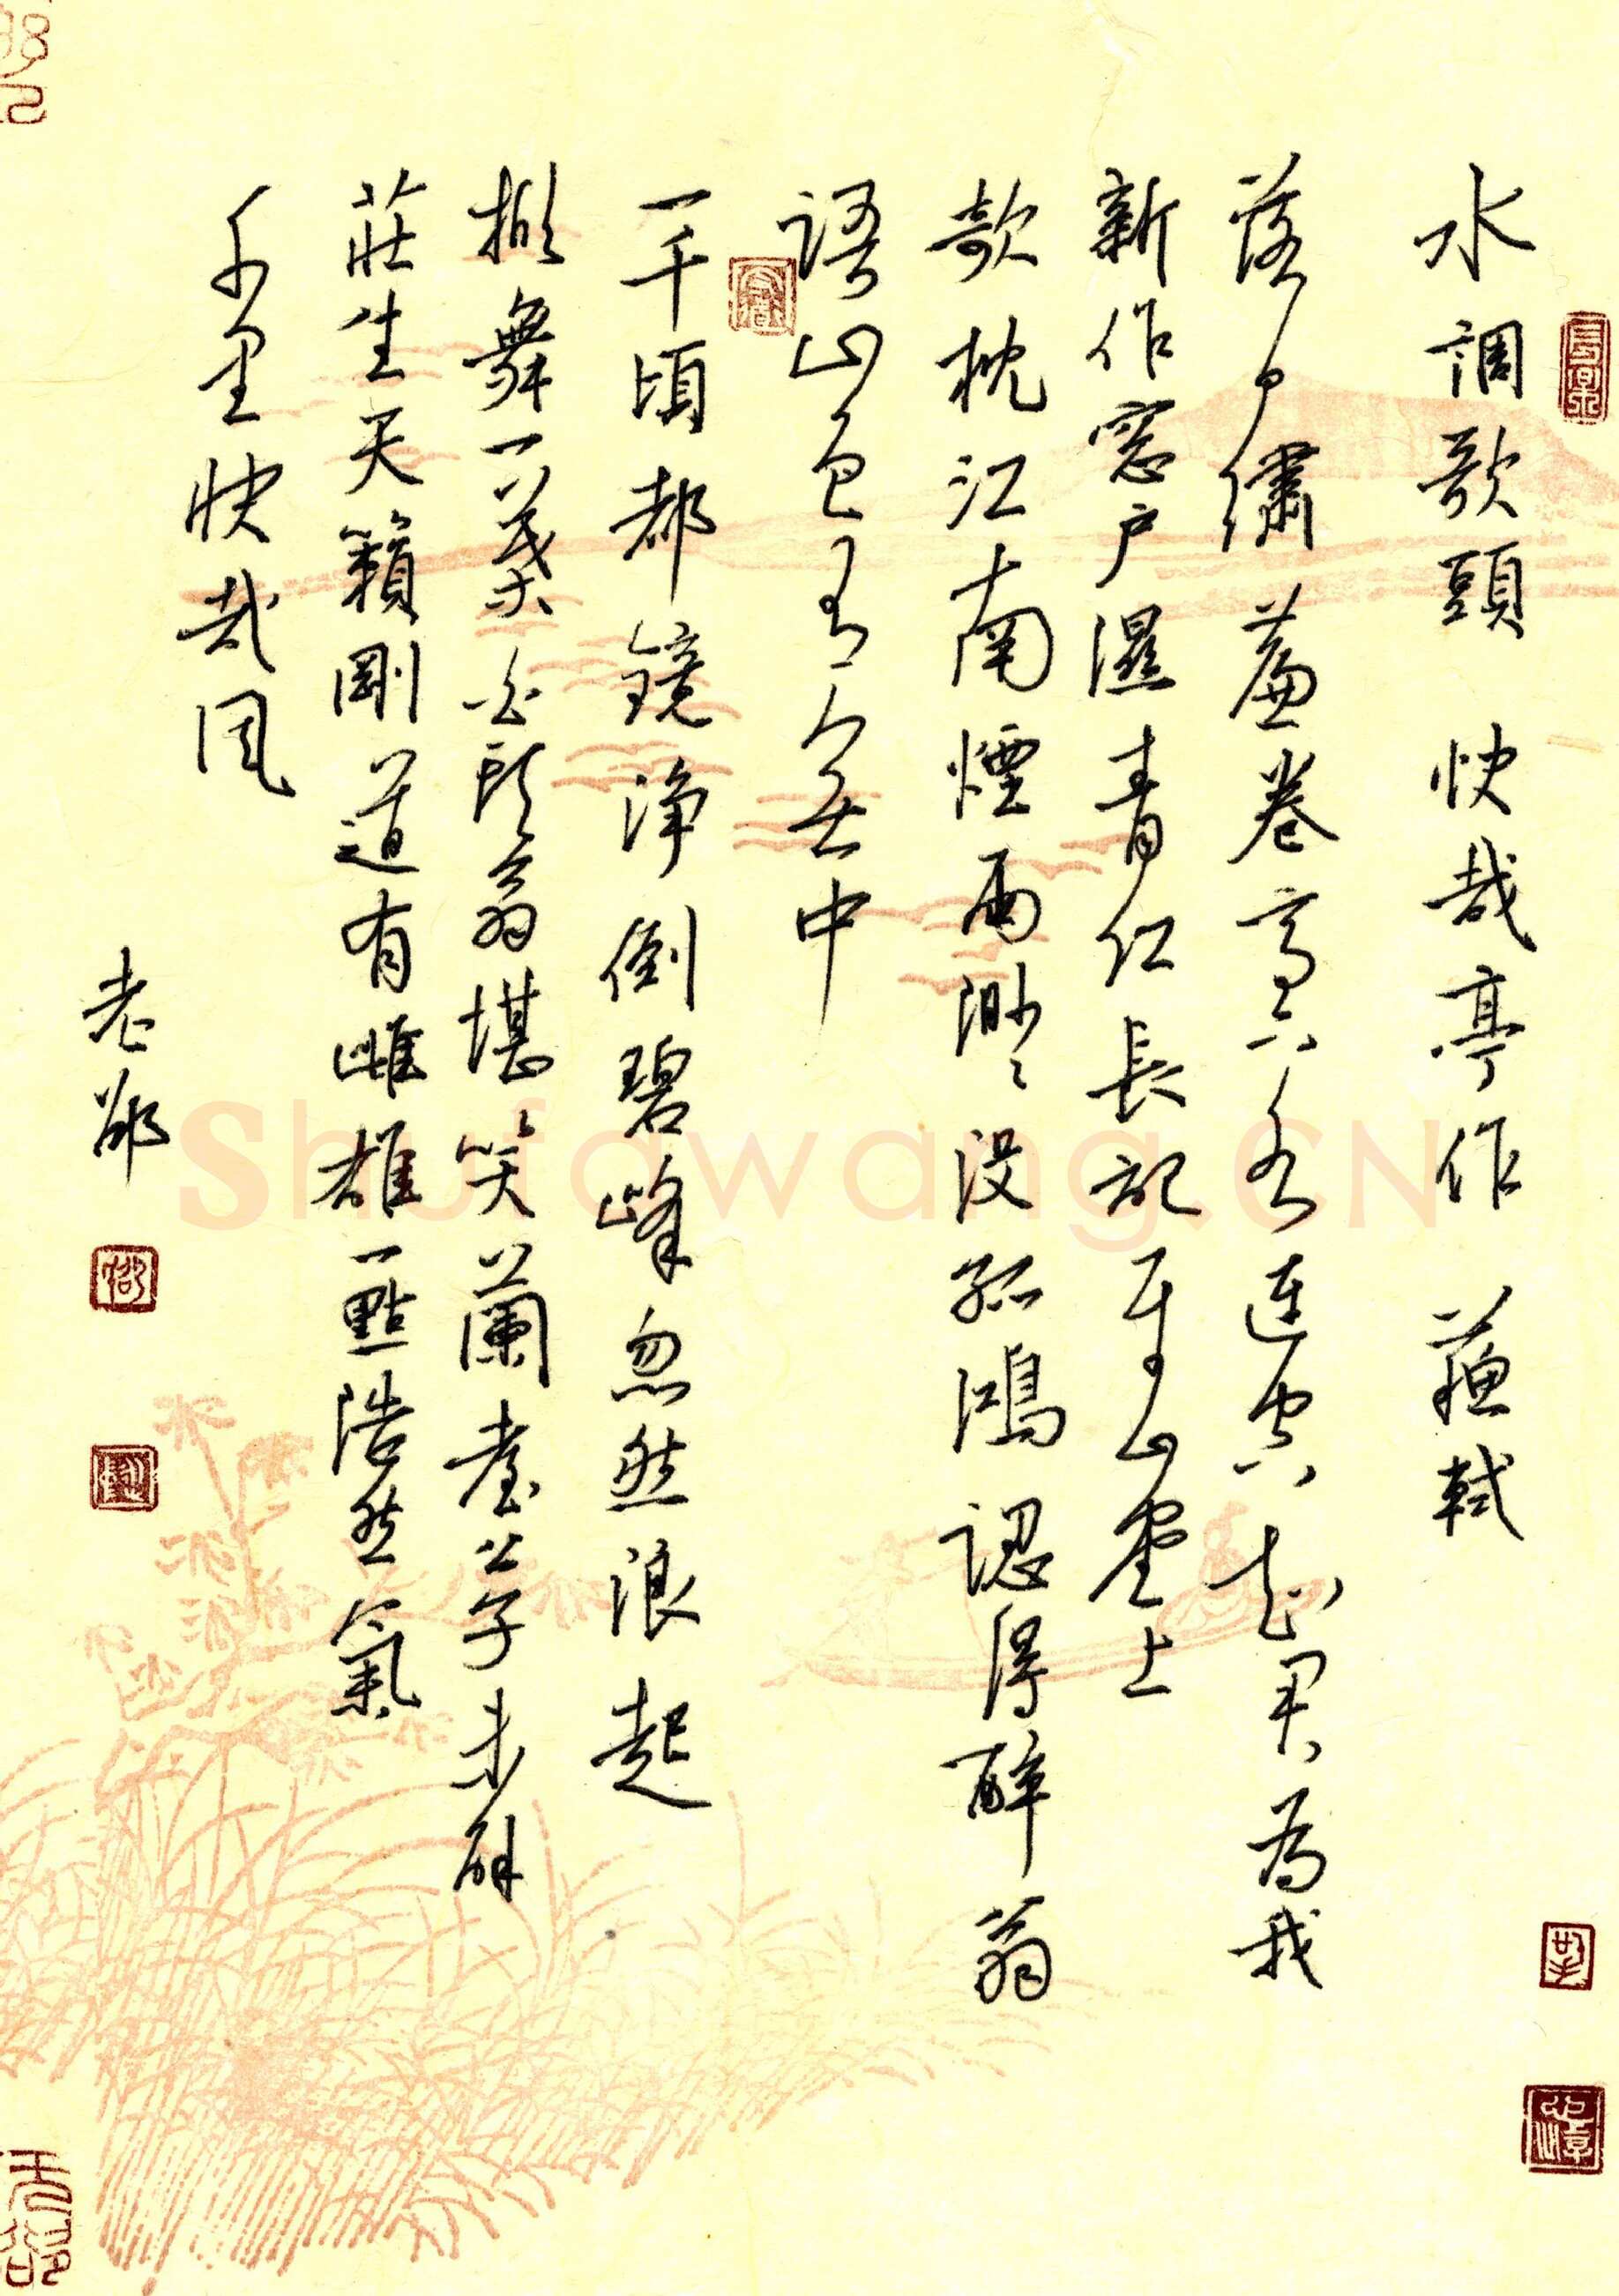 水調歌頭 快哉亭作 蘇軾
落日繡簾卷亭下水連空知君為我
新作窓户濕青红長記平山堂上
欹枕江南煙雨渺渺没孤鴻認得醉翁
語山色有無中
一千頃都鏡淨倒碧峰忽然浪起
掀舞一葉白頭翁堪笑蘭臺公子未解
莊生天籟剛道有雌雄一點浩然氣
千里快哉風
老邵
Shufawang.CN